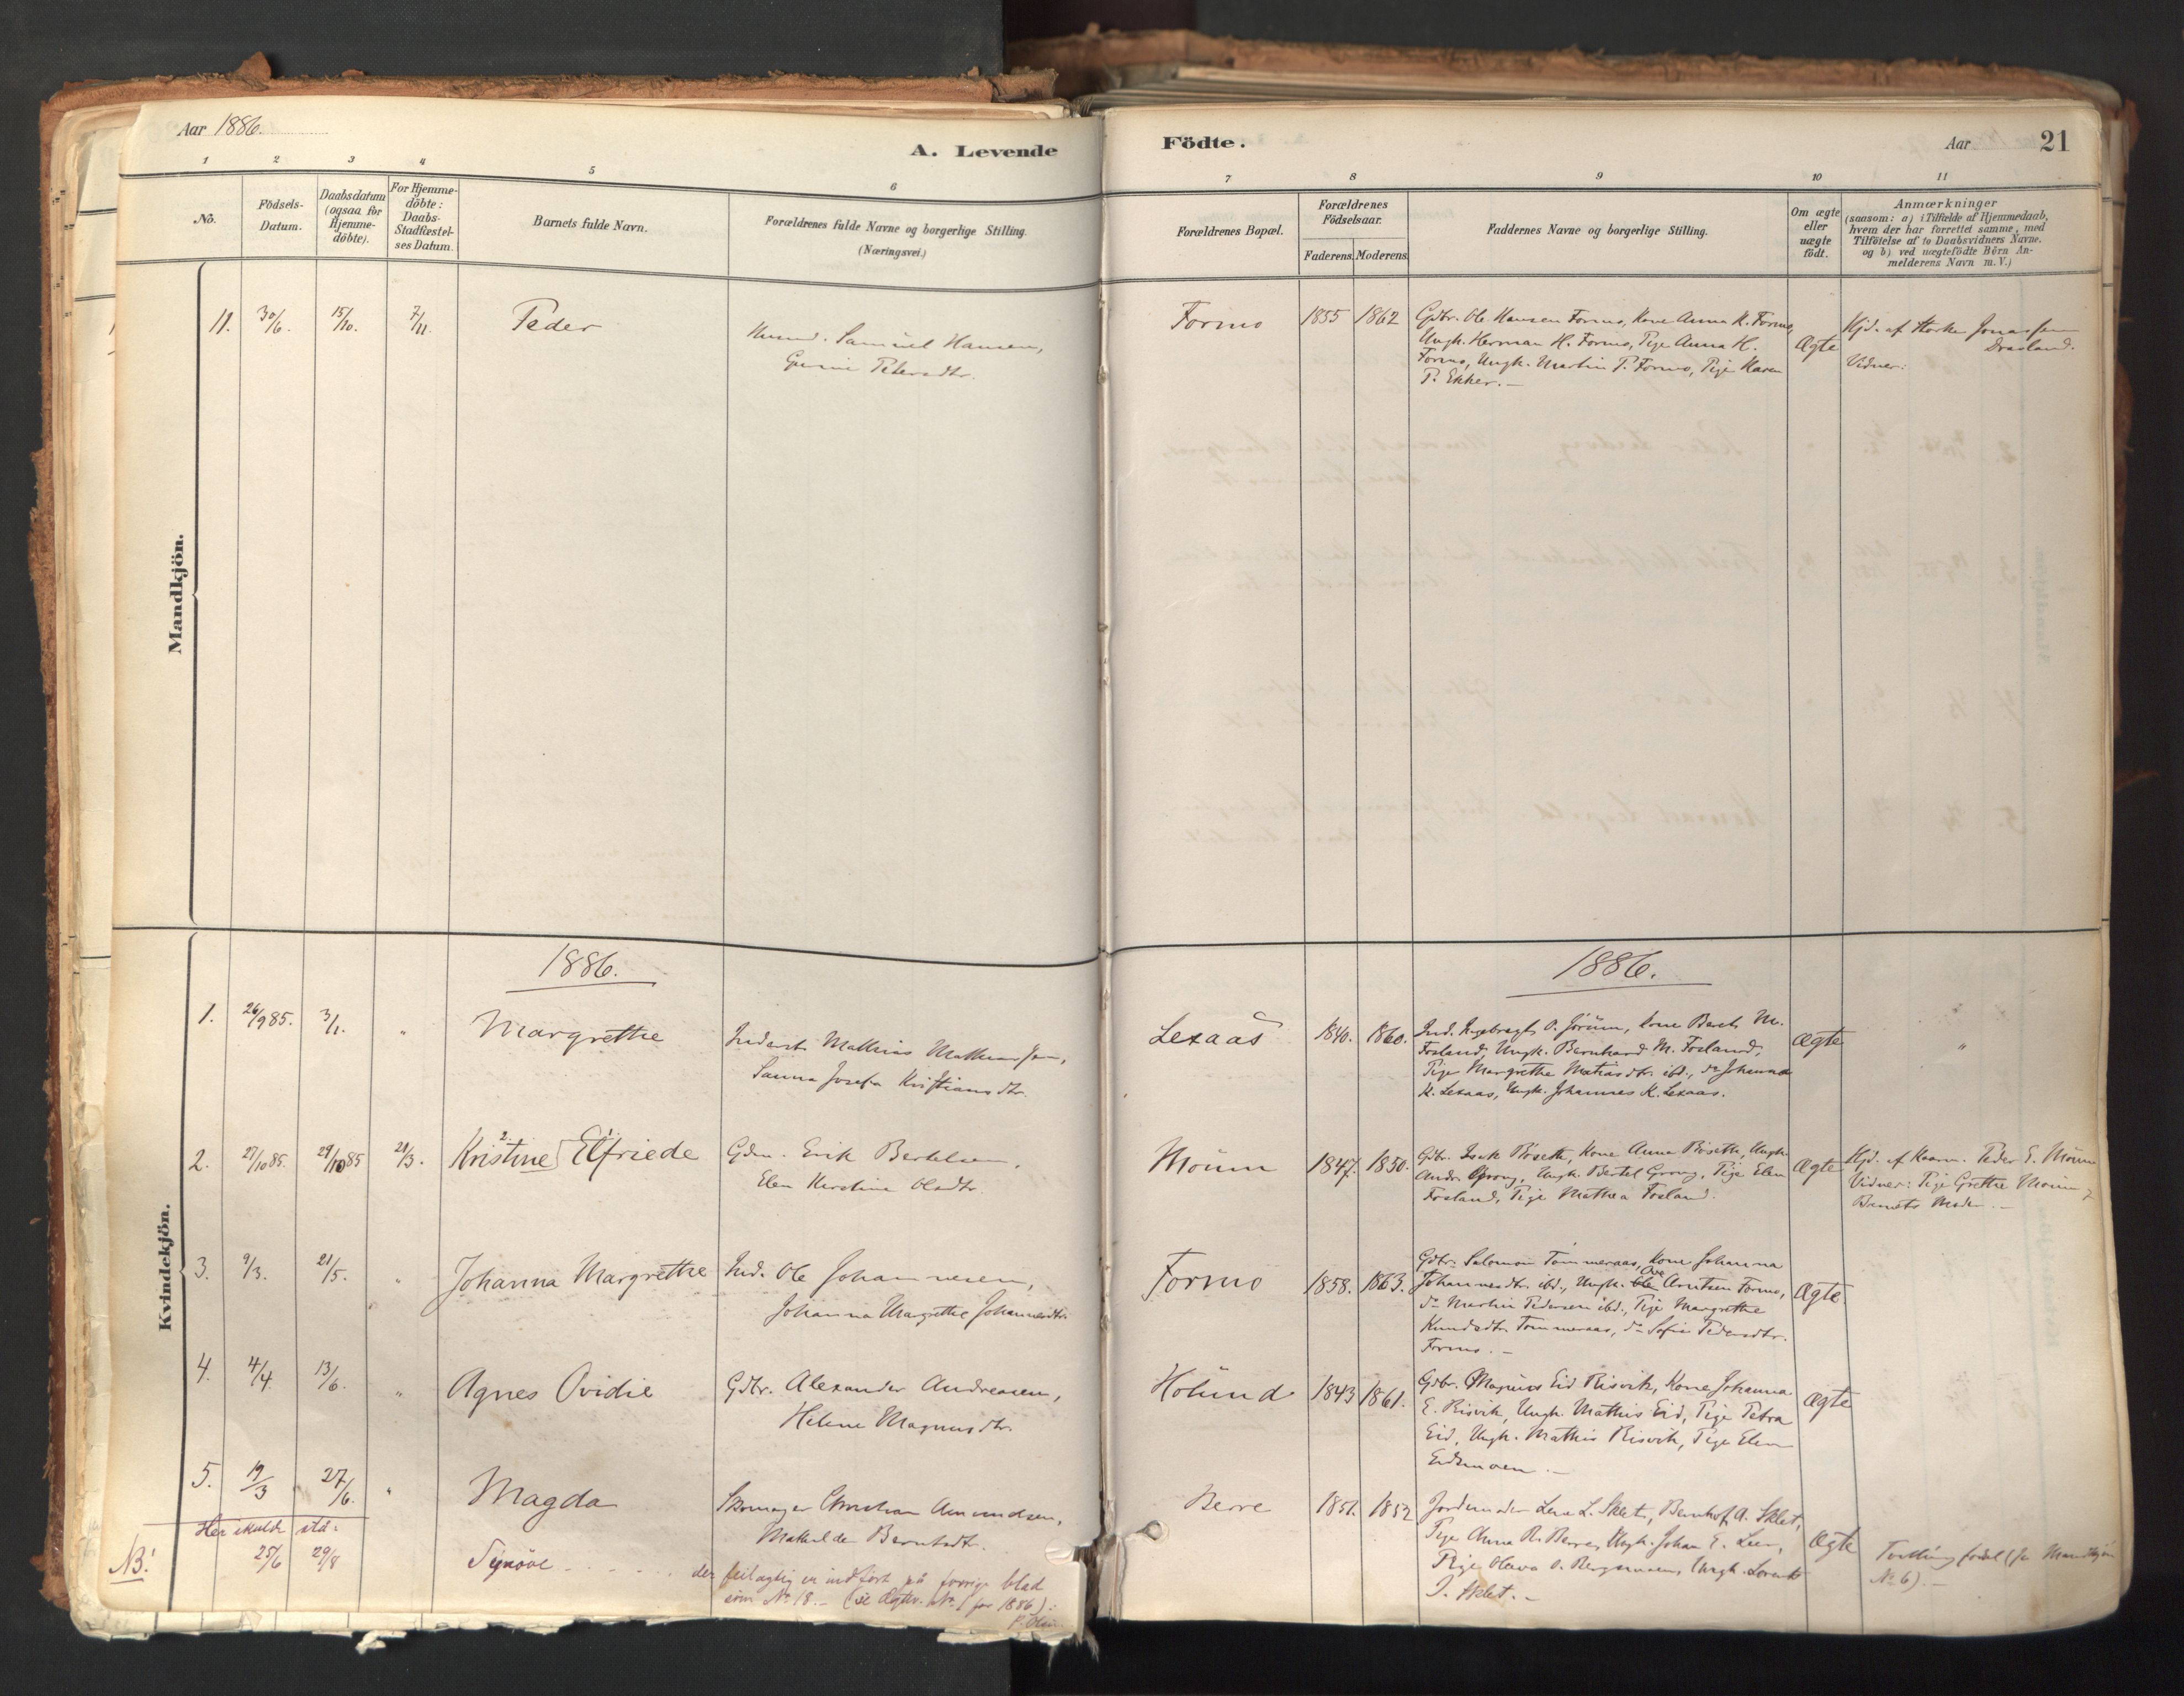 Aar 1886.
A. Levende
Födte.
Aar
21
1 2 3 4 5 6 7 8 9 10 11
No.
Födsels-
Datum.
Daabsdatum
(ogsaa for
Hjemme-
döbte).
For Hjemme-
döbte:
Daabs-
Stadfæstel-
ses Datum.
Barnets fulde Navn.
Forældrenes fulde Navne og borgerlige Stilling.
(Næringsvei.)
Forældrenes Bopæl.
Forældrenes
Födselsaar.
Faderens. Moderens.
Faddernes Navne og borgerlige Stilling.
Om ægte
eller
uægte
födt.
Anmærkninger
(saasom: a) i Tilfælde af Hjemmedaab,
hvem der har forrettet samme, med
Tilföielse af to Daabsvidners Navne.
og b) ved uægtefödte Börn An-
melderens Navn m. V.)
Mandkjön.
11. 30/6. 15/10. 7/11. Peder
Samuel Hansen,
Petersdtr.
Formo 1855 1862
Gdbr. Ole Hansen Formo, Kone Anna K. Formo,
Ungk. Herman H. Formo, Pige Anna H.
Formo, Ungk. Martin P. Formo, Pige Karen
P. Ekker.
Ægte
Hjd. af Kirkes. Jonassen
Vidner:
Kvindekjön.
1886.
1886.
1. 26/9 85. 3/1. " Margrethe
Inderst Mathias Mathiassen,
Sanna Josefa Kristiansdtr.
Lexaas 1840. 1860.
Ind. Ingebrigt O. Jörum, Kone Berit M.
Fosland, Ungk. Bernhard M. Fosland,
Pige Margrethe Matiasdtr. ibd., do Johanna
K. Lexaas, Ungk. Johannes K. Lexaas.
Ægte "
2. 27/10 85. 29/10 85 21/3. Kristine Elfriede
Gdm. Erik Bertelsen,
Elen Kerstine Olsdtr.
Moum 1847. 1850.
Gdbr. Isak Röseth, Kone Anna Röseth, Ungk.
Andr. Grong, Ungk. Bertel Grong, Pige Elen
Fosland, Pige Mathea Fosland.
Ægte
Hjd. af Kaarm. Peder E. Moum
Vidner: Pige Grethe Moum,
Barnets Moder.
3. 9/3. 21/5. " Johanna Margrethe
Ind. Ole Johannesen,
Johanna Margrethe Johannesdtr.
Formo 1858. 1863.
Gdbr. Salomon Tömmeraas, Kone Johanna
Johannesdtr. ibd., Ungk. Ove Arntsen Formo,
do Martin Pedersen ibd., Pige Margrethe
Knudsdtr. Tömmeraas, do Sofie Pedersdtr.
Formo.
Ægte.
4. 4/4. 13/6. " Agnes Ovidie
Gdbr. Alexander Andreasen,
Helene Magnusdtr.
Holund 1843 1861.
Gdbr. Magnus Eid Risvik, Kone Johanna
E. Risvik, Ungk. Mathis Eid, Pige Petra
Eid, Ungk. Mathis Risvik, Pige Elen
Eidsmoen.
Ægte
5. 19/3 27/6. " Magda
Skomager Christian Amundsen,
Mathilde Berntsdt.
Berre 1851. 1852
Jordemoder Lene L. Sklet, Bernhof A. Sklet,
Pige Anna R. Berre, Ungk. Johan E. Lien,
Pige Olava O. Bergsmoen, Ungk. Lorents
J. Sklet.
Ægte
Tvilling (se Mandkjön
No 6).
Her skulde stå:
NB! 25/6 29/8 Synöve . . . . . . der feilagtig er indfört på forrige blad
som No 18. (se No 1 for 1886):
P. Olsen.